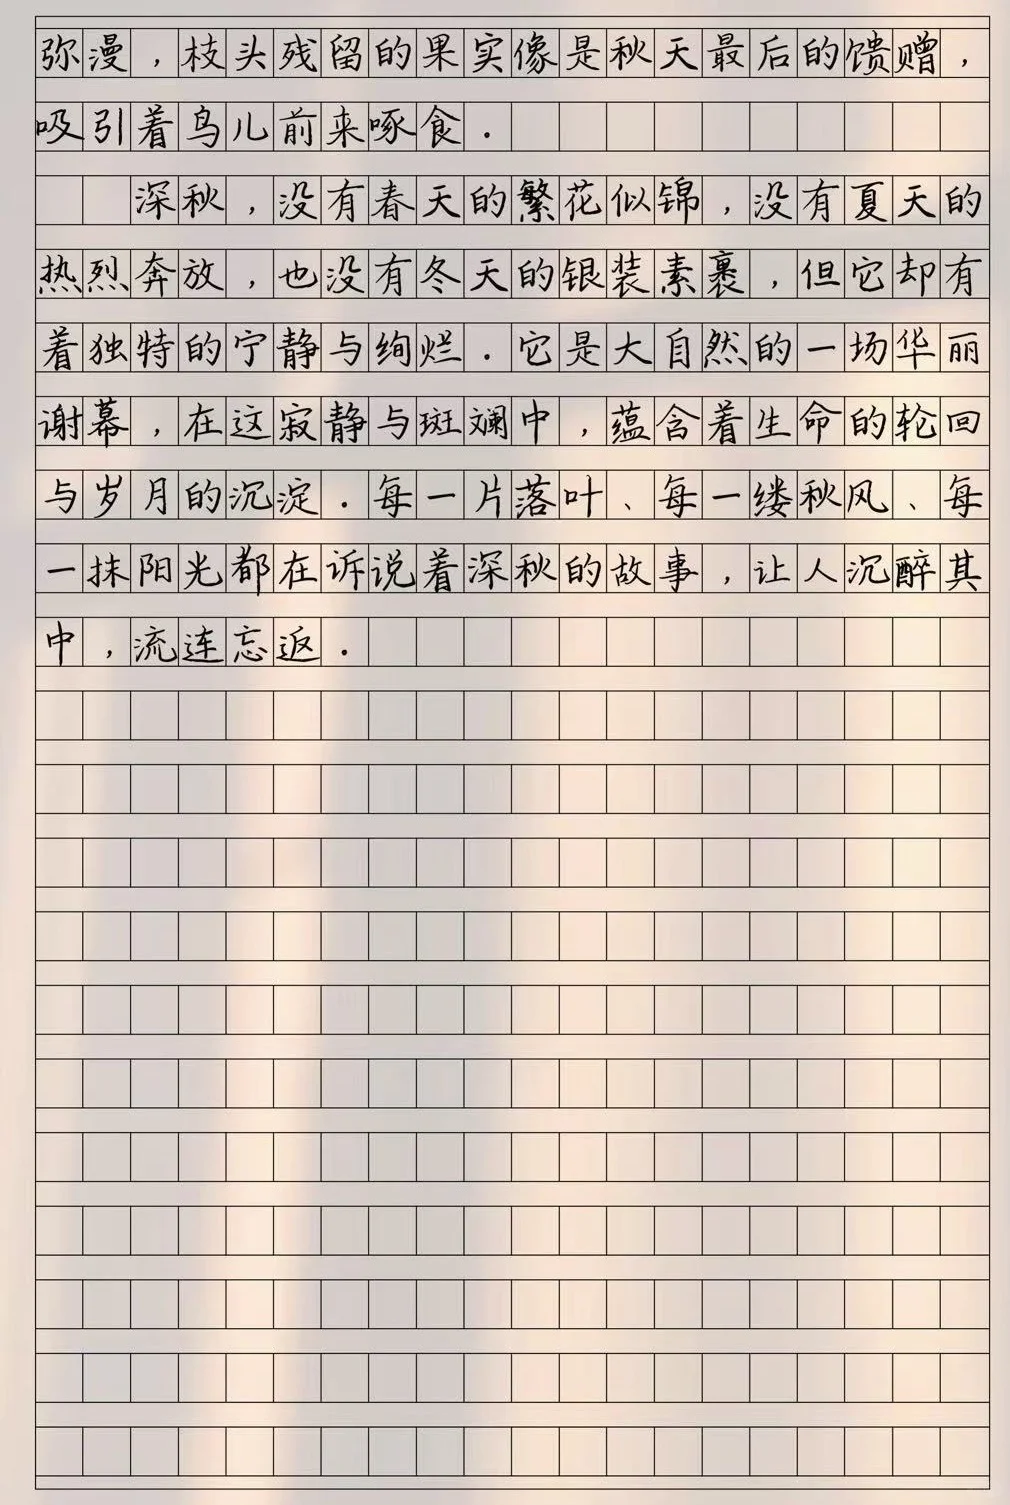 弥漫，枝头残留的果实像是秋天最后的馈赠，
吸引着鸟儿前来啄食．
深秋，没有春天的繁花似锦，没有夏天的
热烈奔放，也没有冬天的银装素裹，但它却有
着独特的宁静与绚烂．它是大自然的一场华丽
谢幕，在这寂静与斑斓中，蕴含着生命的轮回
与岁月的沉淀．每一片落叶、每一缕秋风、每
一抹阳光都在诉说着深秋的故事，让人沉醉其
中，流连忘返．